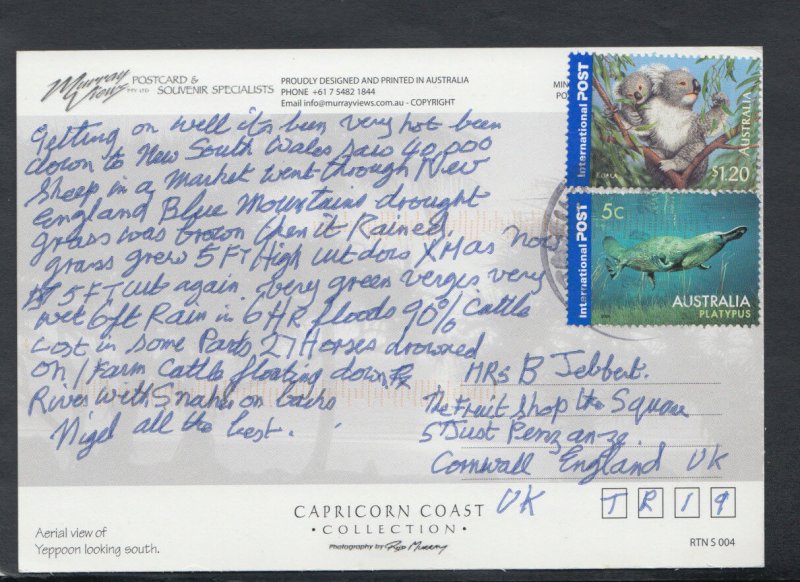 Murray Views PTY LTD POSTCARD & SOUVENIR SPECIALISTS
PROUDLY DESIGNED AND PRINTED IN AUSTRALIA
PHONE +61 7 5482 1844
Email info@murrayviews.com.au - COPYRIGHT
MIN
PO
International POST
KOALA
AUSTRALIA
$1.20
International POST
5c
AUSTRALIA
PLATYPUS
Getting on well its been very hot been
down to New South Wales saw 40,000
Sheep in a market went through New
England Blue Mountains drought
grass was brown then it Rained.
grass grew 5 FT High cut dors XMas now
5 FT cut again. very green verges very
wet 6ft Rain in 6 HR floods 90% Cattle
Lost in some Parts 27 Horses drowned
on 1 Farm Cattle floating down
River with Snakes on backs
Nigel all the best.
MRS B Jebbert.
The Fruit Shop the Square
St Just Penzance.
Cornwall England UK
UK T R 1 9
CAPRICORN COAST
• COLLECTION •
Photography by Ryp Murray
Aerial view of
Yeppoon looking south.
RTN S 004